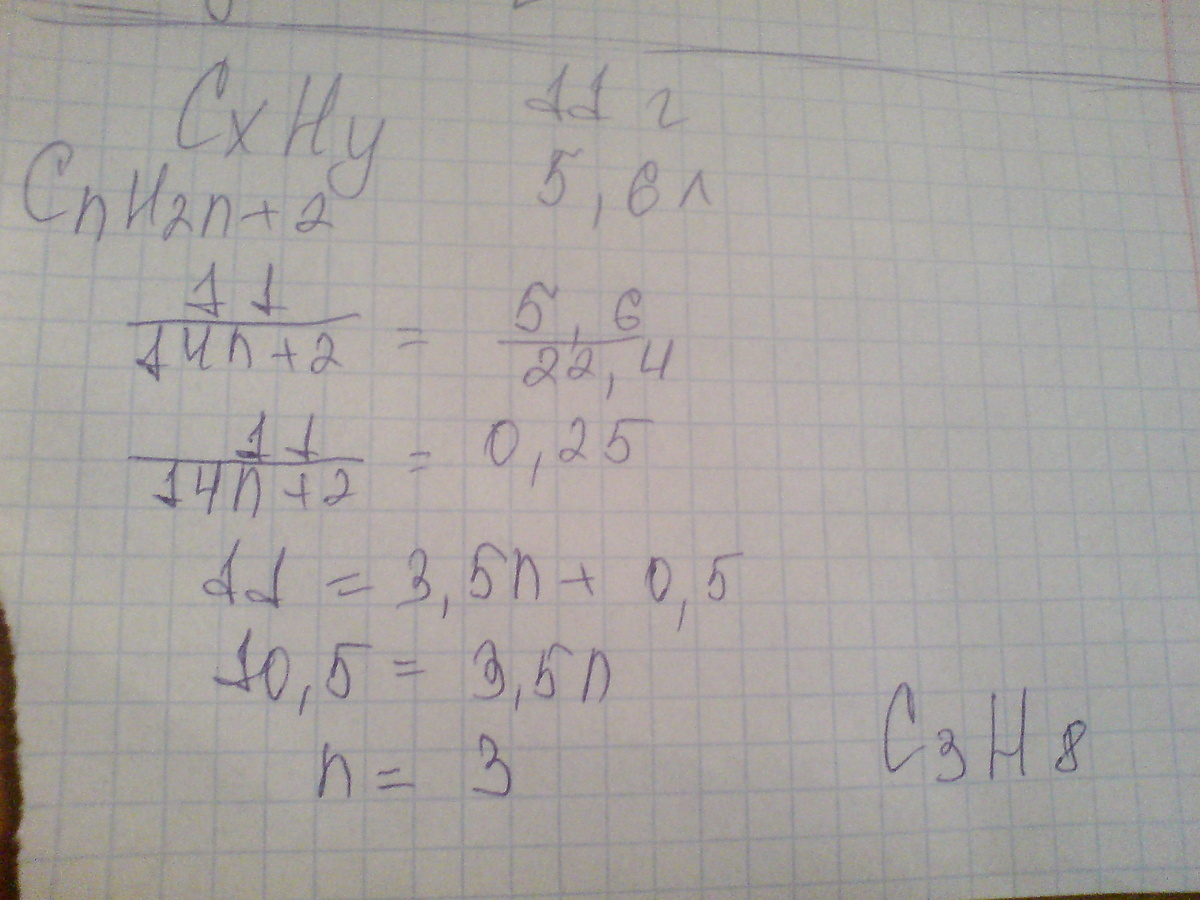 CxHy 11 г
CnH2n+2 5,6 л
11/14n+2 = 5,6/22,4
11/14n+2 = 0,25
11 = 3,5n + 0,5
10,5 = 3,5n
n = 3 C3H8